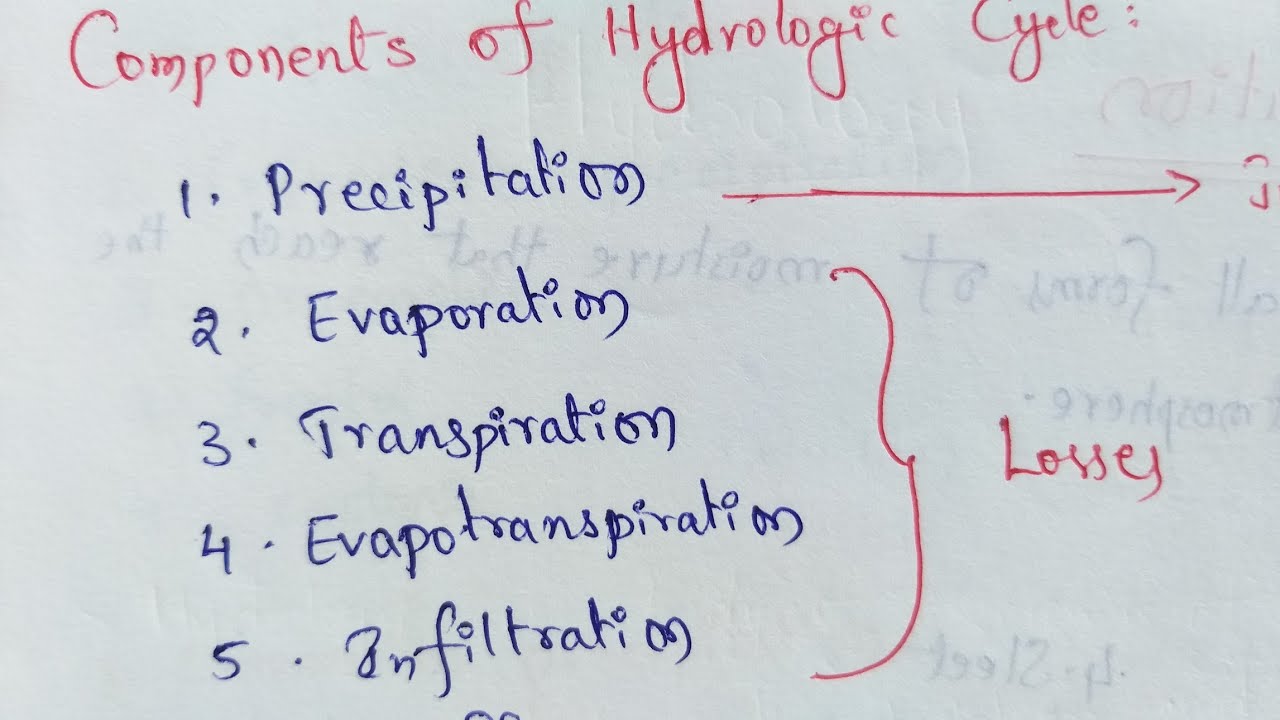 Components of Hydrologic Cycle:
1. Precipitation
2. Evaporation
3. Transpiration
4. Evapotranspiration
5. Infiltration
Losses